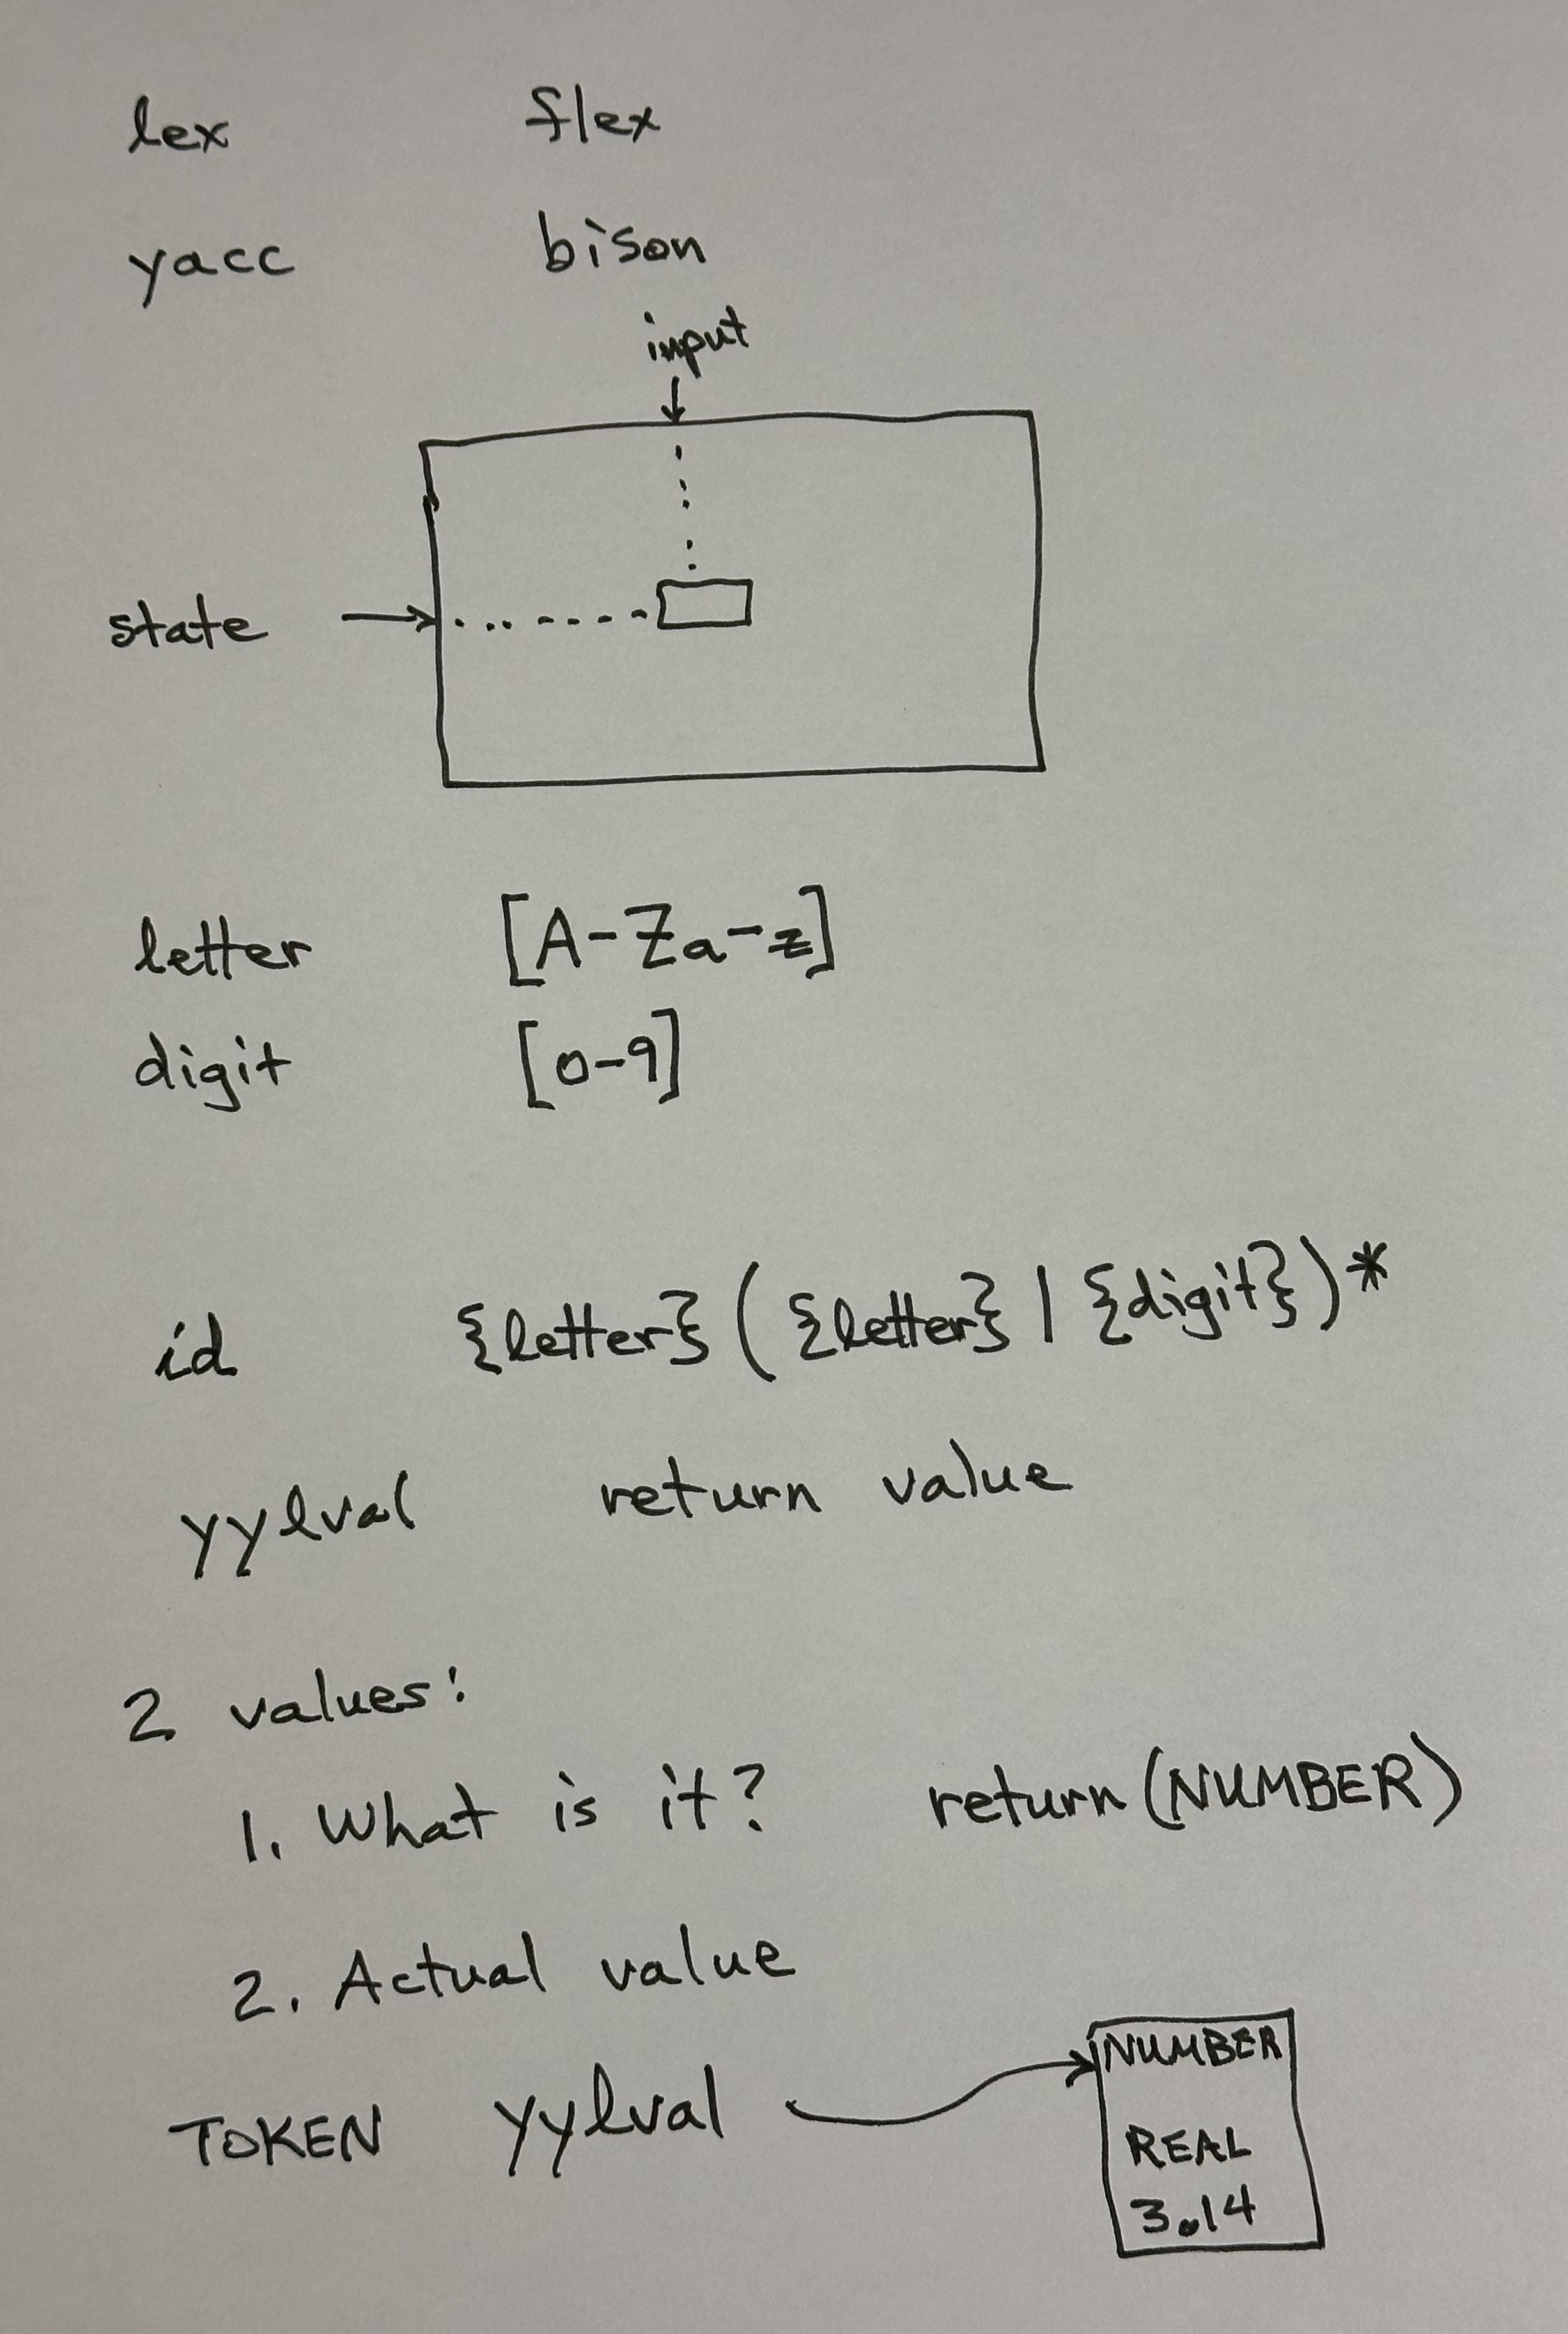 lex flex
yacc bison
input
state
letter [A-Za-z]
digit [0-9]
id {letter} ( {letter} | {digit} )*
yylval return value
2 values:
1. What is it? return (NUMBER)
2. Actual value
NUMBER
TOKEN yylval
REAL
3.14